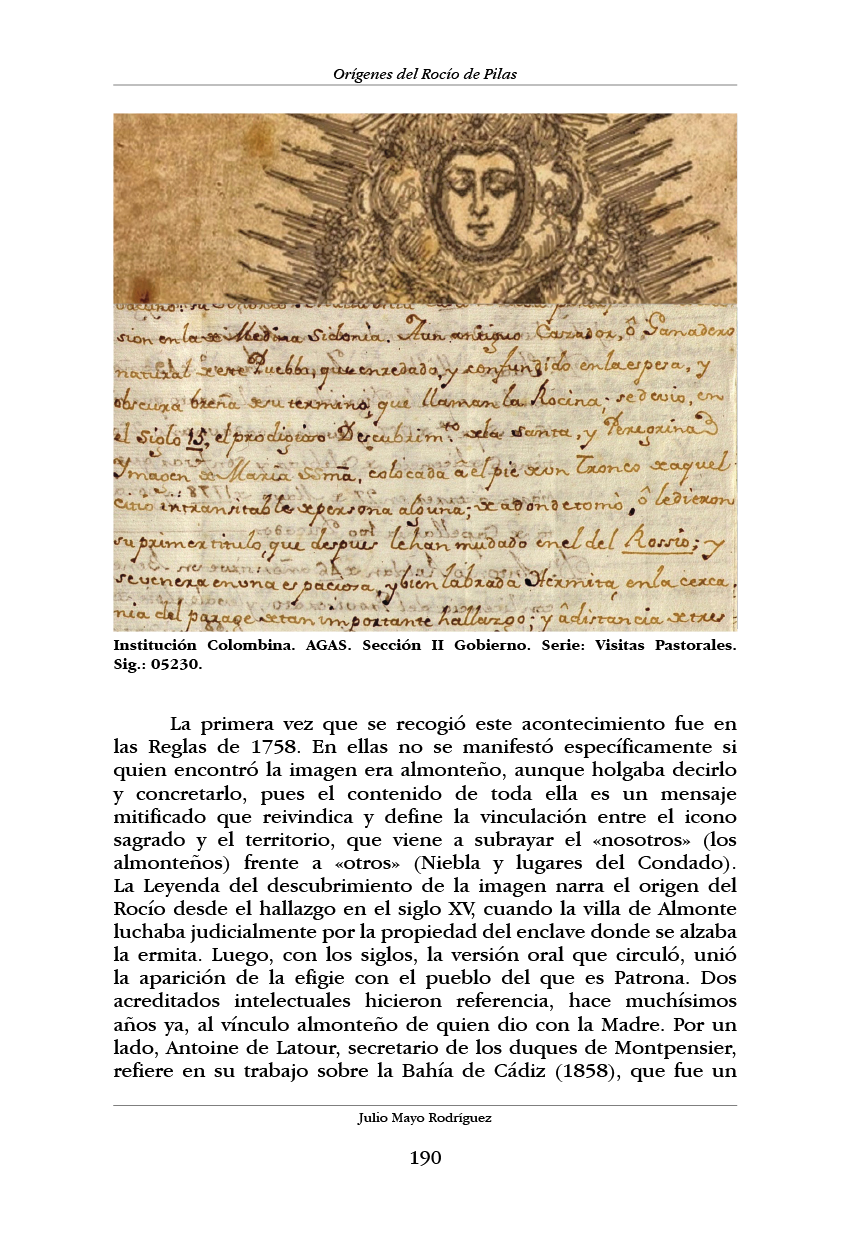 Orígenes del Rocío de Pilas
sion en la de Medina Sidonia. Aun antiguo Cazador, ô Ganadero
natural de este Puebblo, que enredado, y confundido en la espesa, y
obscura breña de su termino, que llaman la Rocina; se devio, en
el siglo 15, el prodigioso Descubrim.to de la Santa, y Peregrina
Ymagen de Maria SSma, colocada â el pie de un Tronco de aquel
citio intransitable de persona alguna; de adonde tomò, ô le dieron
su primer titulo, que despues le han mudado en el del Rossio; y
se venera en una espaciosa, y bien labrada Hermita, en la cerca
nia del parage de tan importante hallazgo; y â distancia de tres
Institución Colombina. AGAS. Sección II Gobierno. Serie: Visitas Pastorales.
Sig.: 05230.
La primera vez que se recogió este acontecimiento fue en
las Reglas de 1758. En ellas no se manifestó específicamente si
quien encontró la imagen era almonteño, aunque holgaba decirlo
y concretarlo, pues el contenido de toda ella es un mensaje
mitificado que reivindica y define la vinculación entre el icono
sagrado y el territorio, que viene a subrayar el «nosotros» (los
almonteños) frente a «otros» (Niebla y lugares del Condado).
La Leyenda del descubrimiento de la imagen narra el origen del
Rocío desde el hallazgo en el siglo XV, cuando la villa de Almonte
luchaba judicialmente por la propiedad del enclave donde se alzaba
la ermita. Luego, con los siglos, la versión oral que circuló, unió
la aparición de la efigie con el pueblo del que es Patrona. Dos
acreditados intelectuales hicieron referencia, hace muchísimos
años ya, al vínculo almonteño de quien dio con la Madre. Por un
lado, Antoine de Latour, secretario de los duques de Montpensier,
refiere en su trabajo sobre la Bahía de Cádiz (1858), que fue un
Julio Mayo Rodríguez
190